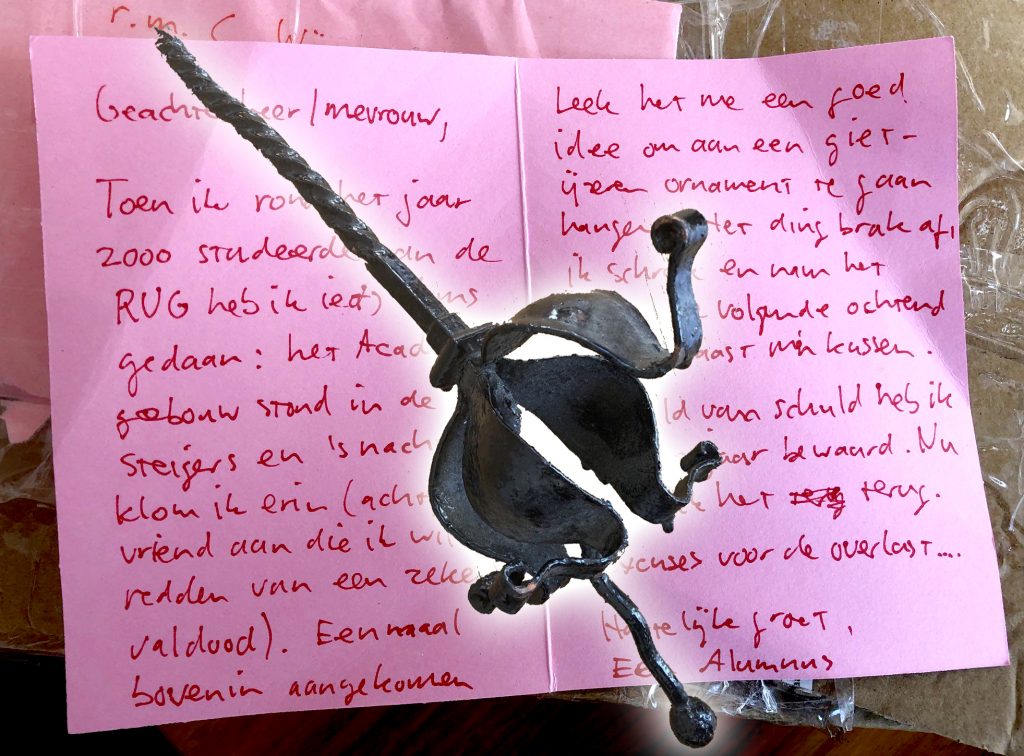 r.m. C.
Geachte heer/mevrouw,
Toen ik rond het jaar
2000 studeerde aan de
RUG heb ik iets
gedaan: het Acad
gebouw stond in de
steigers en 's nach
klom ik erin (acht
vriend aan die ik wil
redden van een zeke
valdood). Eenmaal
bovenin aangekomen
Leek het me een goed
idee om aan een giet-
ijzeren ornament te gaan
hangen. Het ding brak af,
ik schrok en nam het
volgende ochtend
naast m'n kussen.
van schuld heb ik
bewaard. Nu
het terug.
Excuses voor de overlast....
Hartelijke groet,
Een Alumnus